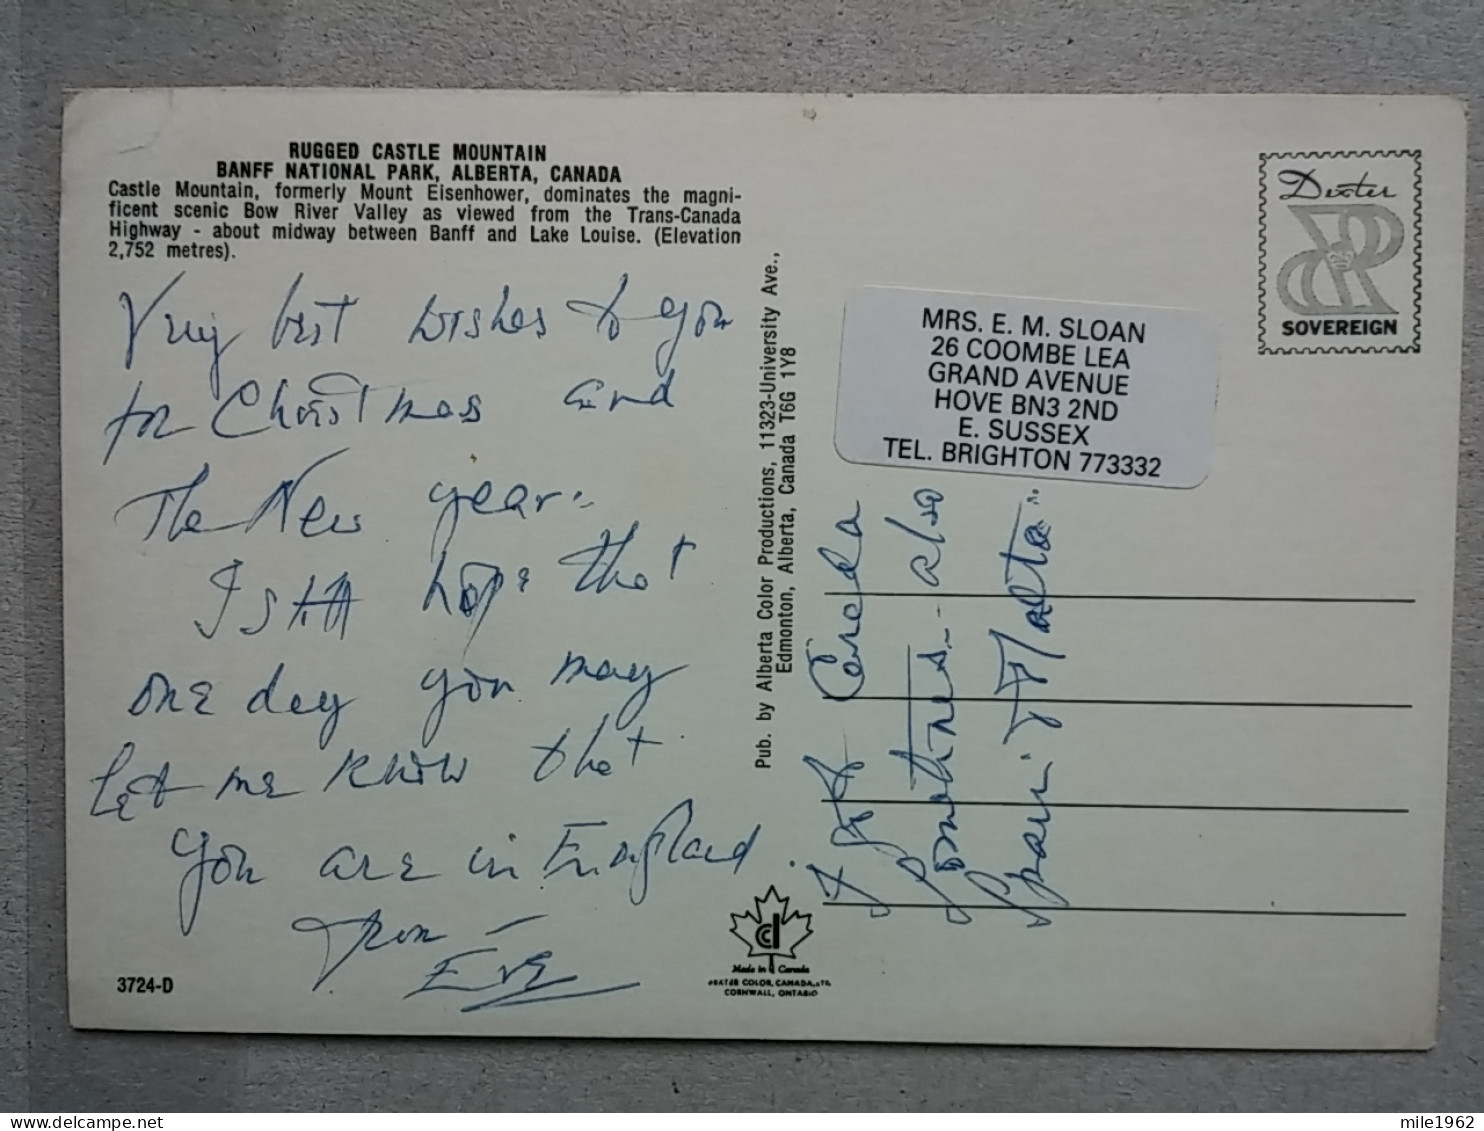 RUGGED CASTLE MOUNTAIN
BANFF NATIONAL PARK, ALBERTA, CANADA
Castle Mountain, formerly Mount Eisenhower, dominates the magni-
ficent scenic Bow River Valley as viewed from the Trans-Canada
Highway - about midway between Banff and Lake Louise. (Elevation
2,752 metres).
Very best wishes to you
for Christmas and
The New year.
I still hope that
one day you may
Let me know that
you are in England.
from -
Eve
3724-D
Pub. by Alberta Color Productions, 11323-University Ave.,
Edmonton, Alberta, Canada T6G 1Y8
Made in Canada
DEXTER COLOR, CANADA, LTD.
CORNWALL, ONTARIO
Dexter
SOVEREIGN
MRS. E. M. SLOAN
26 COOMBE LEA
GRAND AVENUE
HOVE BN3 2ND
E. SUSSEX
TEL. BRIGHTON 773332
Canada
Sometimes - also
Spain & Malta.
mile1962